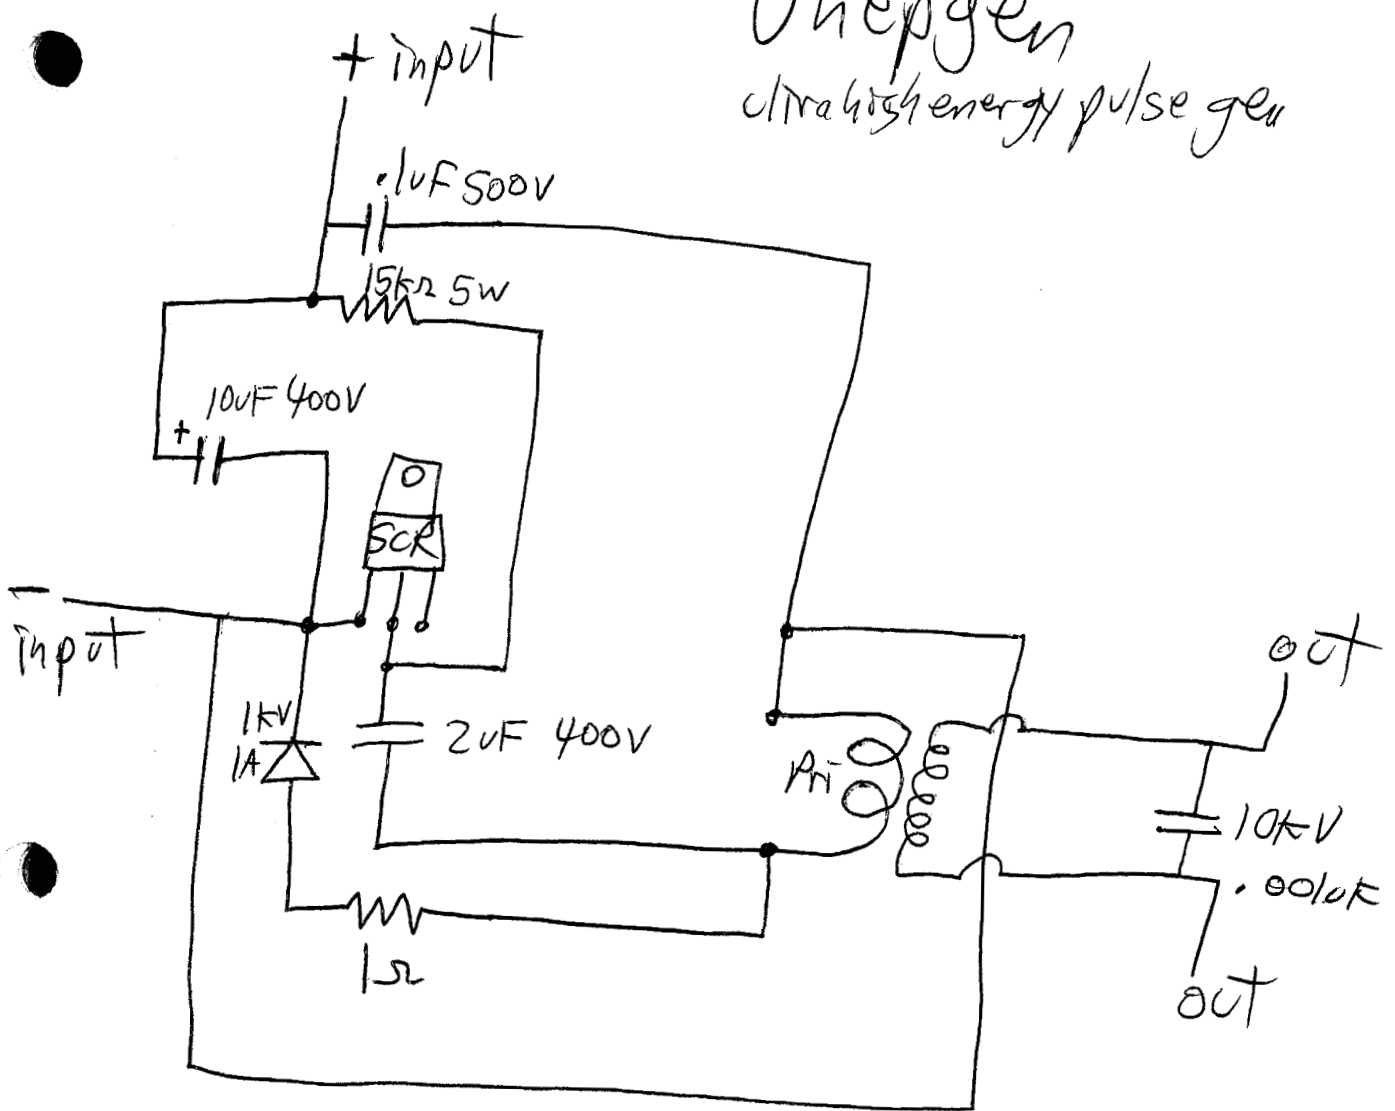 Uhepgen
ultrahighenergy pulse gen
+ input
.1uF 500V
15kΩ 5W
10uF 400V
+
SCR
−
input
out
1kV
1A
2uF 400V
Pri
10kV
.001uF
1Ω
out